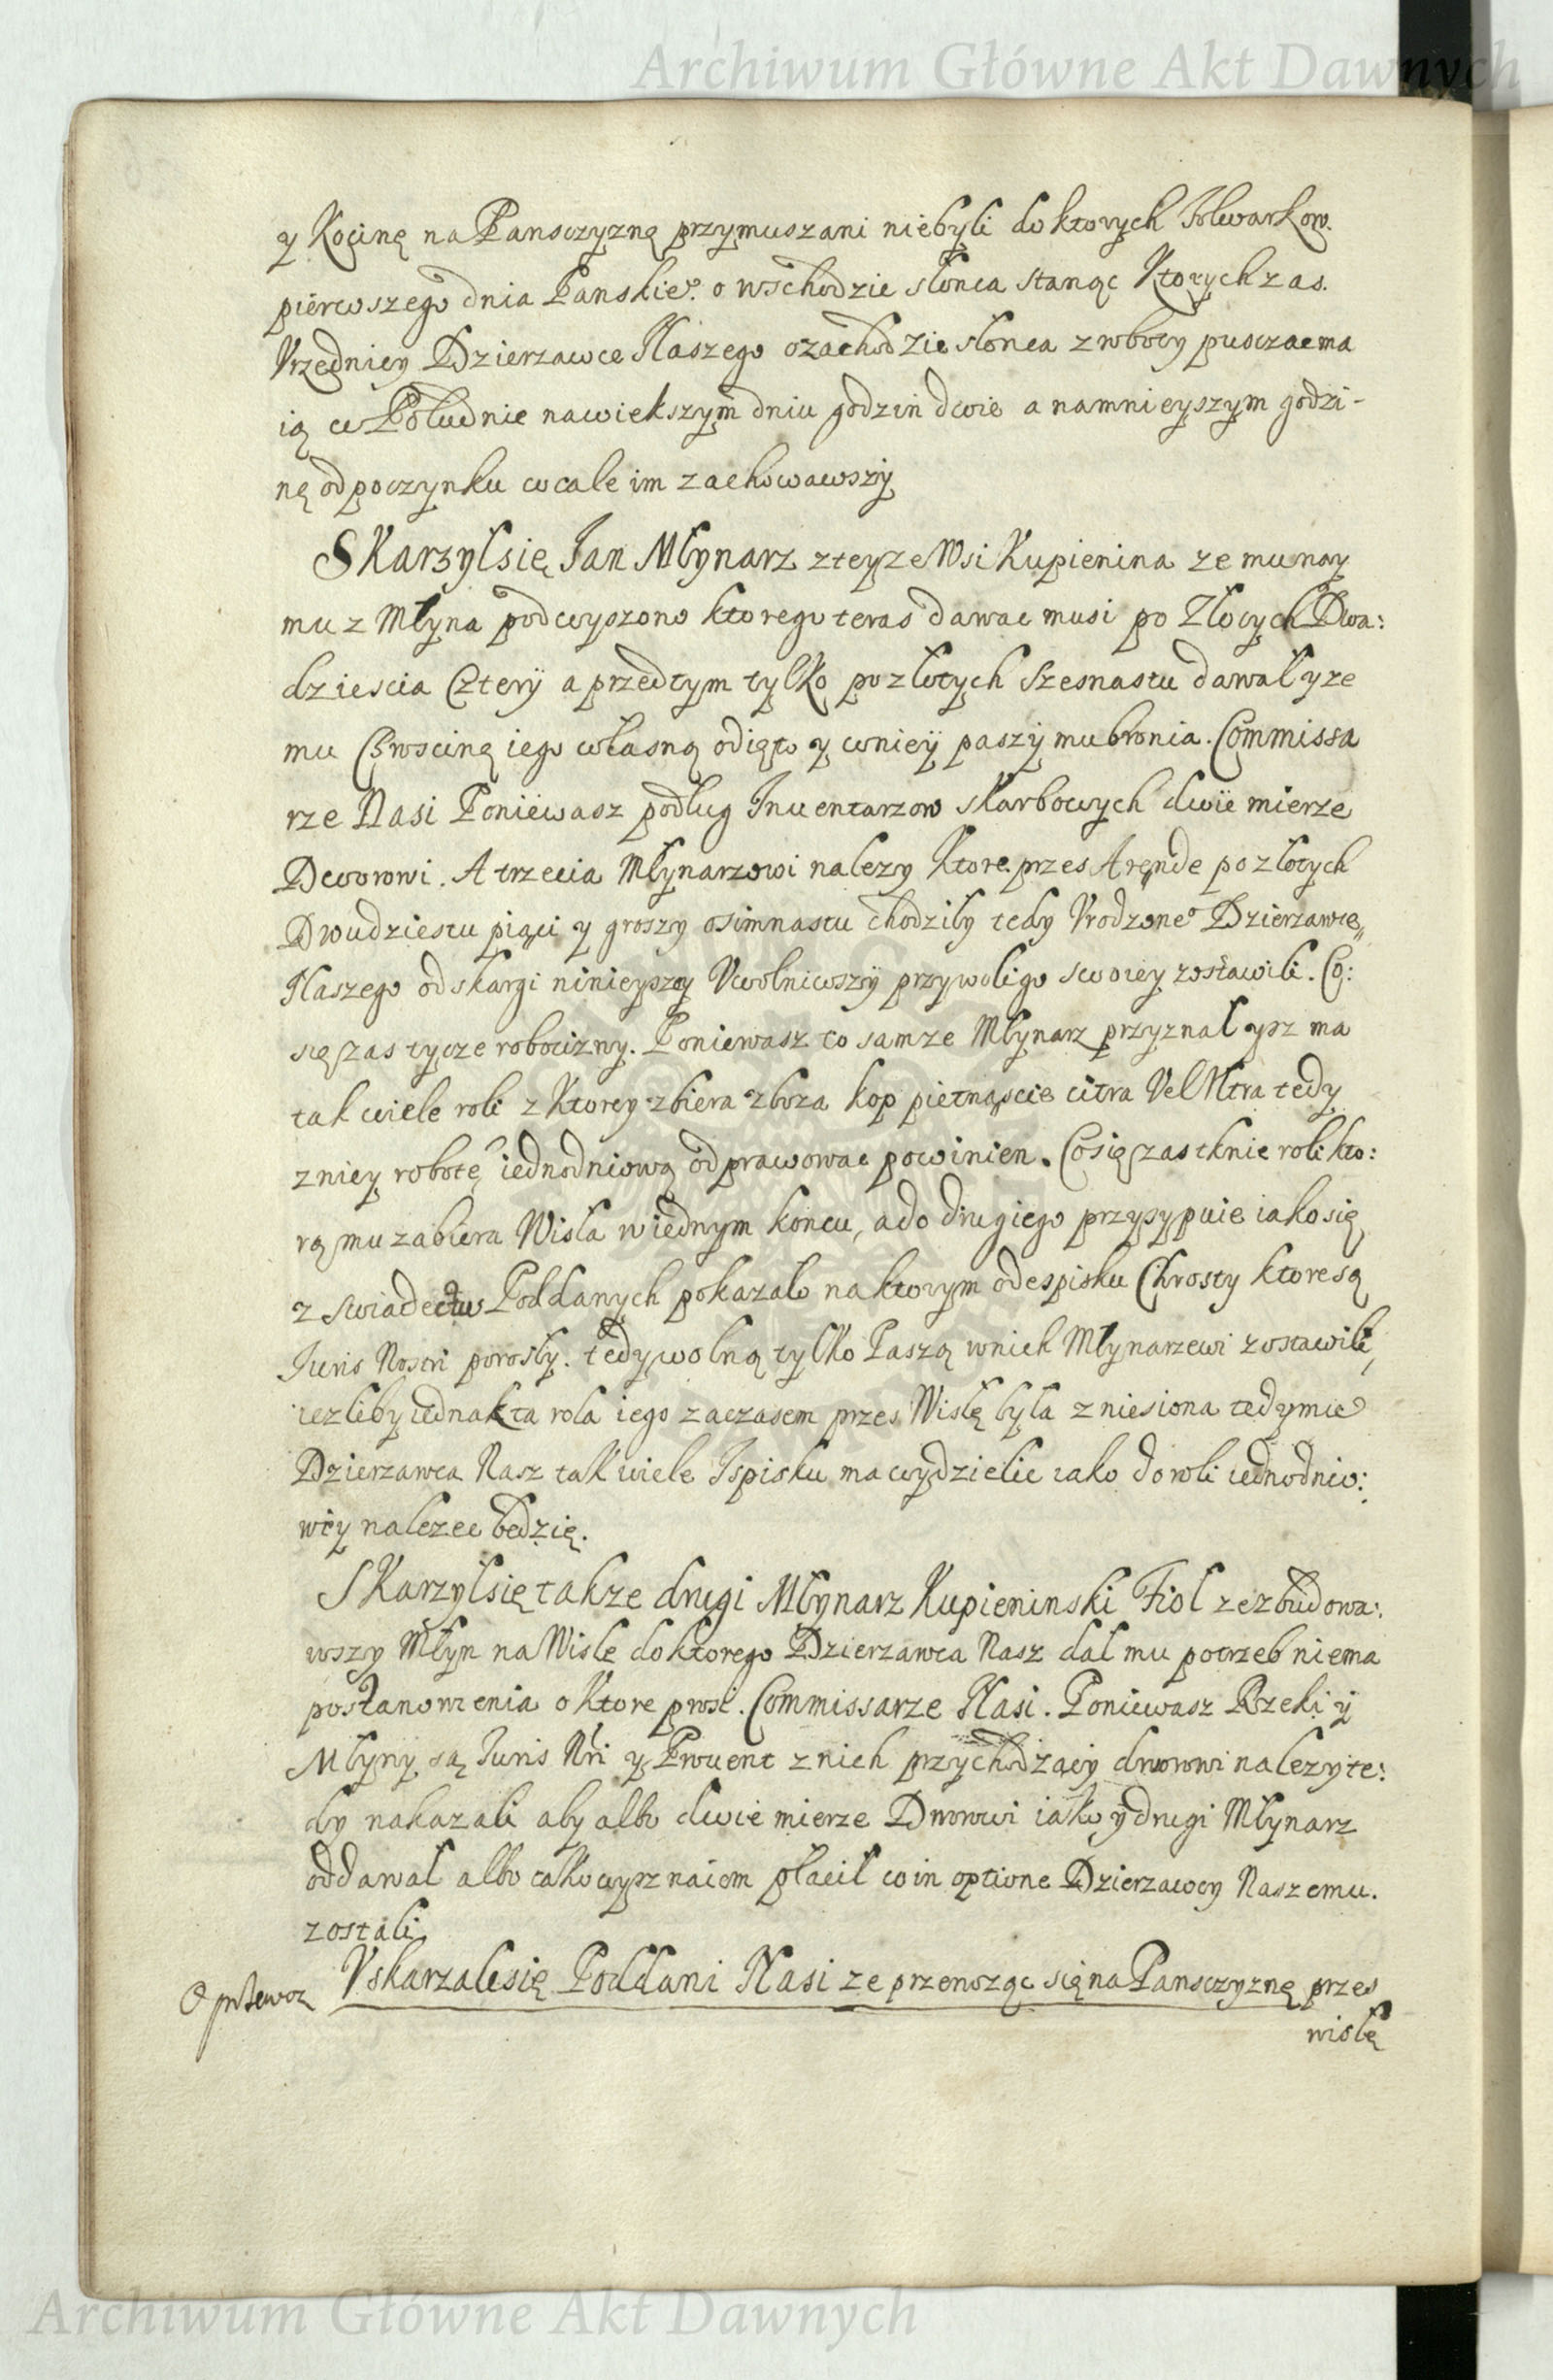 Archiwum Główne Akt Dawnych
y Kocinę na Pansczyznę przymuszani niebyli do ktorych Folwarkow.
pierwszego dnia Panskie° o wschodzie słonca stanąc Ktorych zas.
Vrzędnicy Dzierzawce Naszego ozachodzie słonca z roboty pusczac ma
ią w Południe nawiekszym dniu godzin dwie a namnieyszym godzi-
nę odpoczynku wcale im zachowawszy
Skarzylsię Jan Młynarz zteyze Wsi Kupienina ze mu nay
mu z Młyna podwyszono ktorego teras dawac musi po Złotych Dwa:
dziescia Cztery a przedtym tylko po złotych szesnastu dawał y ze
mu Chroscinę iego własną odięto y wniey paszy mu bronia. Commissa
rze Nasi Poniewasz podług Inuentarzow skarbowych dwie mierze
Dworowi. A trzecia Młynarzowi nalezy Ktore przes Arende po złotych
Dwudziestu piąci y groszy osimnastu chodziły tedy Vrodzone° Dzierzawcę
Naszego od skargi ninieyszey Vwolniwszy przy woli go swoiey zostawili. Co:
się zas tycze robocizny. Poniewasz to samze Młynarz przyznał ysz ma
tak wiele roli z Ktorey zbiera zboza kop piętnascie citra Vel Vltra tedy
z niey robotę iednodniową odprawowac powinien. Cosię zas tknie roli kto:
rą mu zabiera Wisła w iednym koncu, a do drugiego przysypuie iako się
z swiadectw Poddanych pokazało na ktorym odespisku Chrosty ktore są
Iuris Nostri porosły. tedy wolną tylko Paszą wnich Młynarzewi zostawili,
iezliby iednak ta rola iego zaczasem przes Wisłę była zniesiona tedy mie
Dzierzawca Nasz tak wiele Ispisku ma wydzielic iako do roli iednodnio:
wey nalezec będzię.
Skarzylsię takze drugi Młynarz Kupieninski Fiol ze zbudowa:
wszy Młyn na Wisle do ktorego Dzierzawca Nasz dal mu potrzeb niema
postanowienia o Ktore prosi. Commissarze Nasi. Poniewasz Rzeki y
Młyny są Iuris Nri y Prouent z nich przychodzący dworowi nalezy te:
dy nakazali aby albo dwie mierze Dworowi iako y drugi Młynarz
oddawal albo całkowysz naiem płacil co in optione Dzierzawcy Naszemu.
zostali
O przewoz
Vskarzalisię Poddani Nasi ze przenosząc się na Pansczyznę przes
wisłę
Archiwum Główne Akt Dawnych